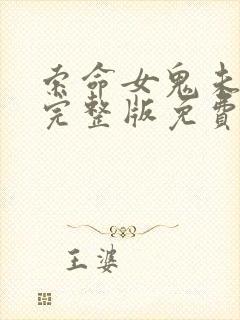 索命女鬼未
完整版免費
王婆